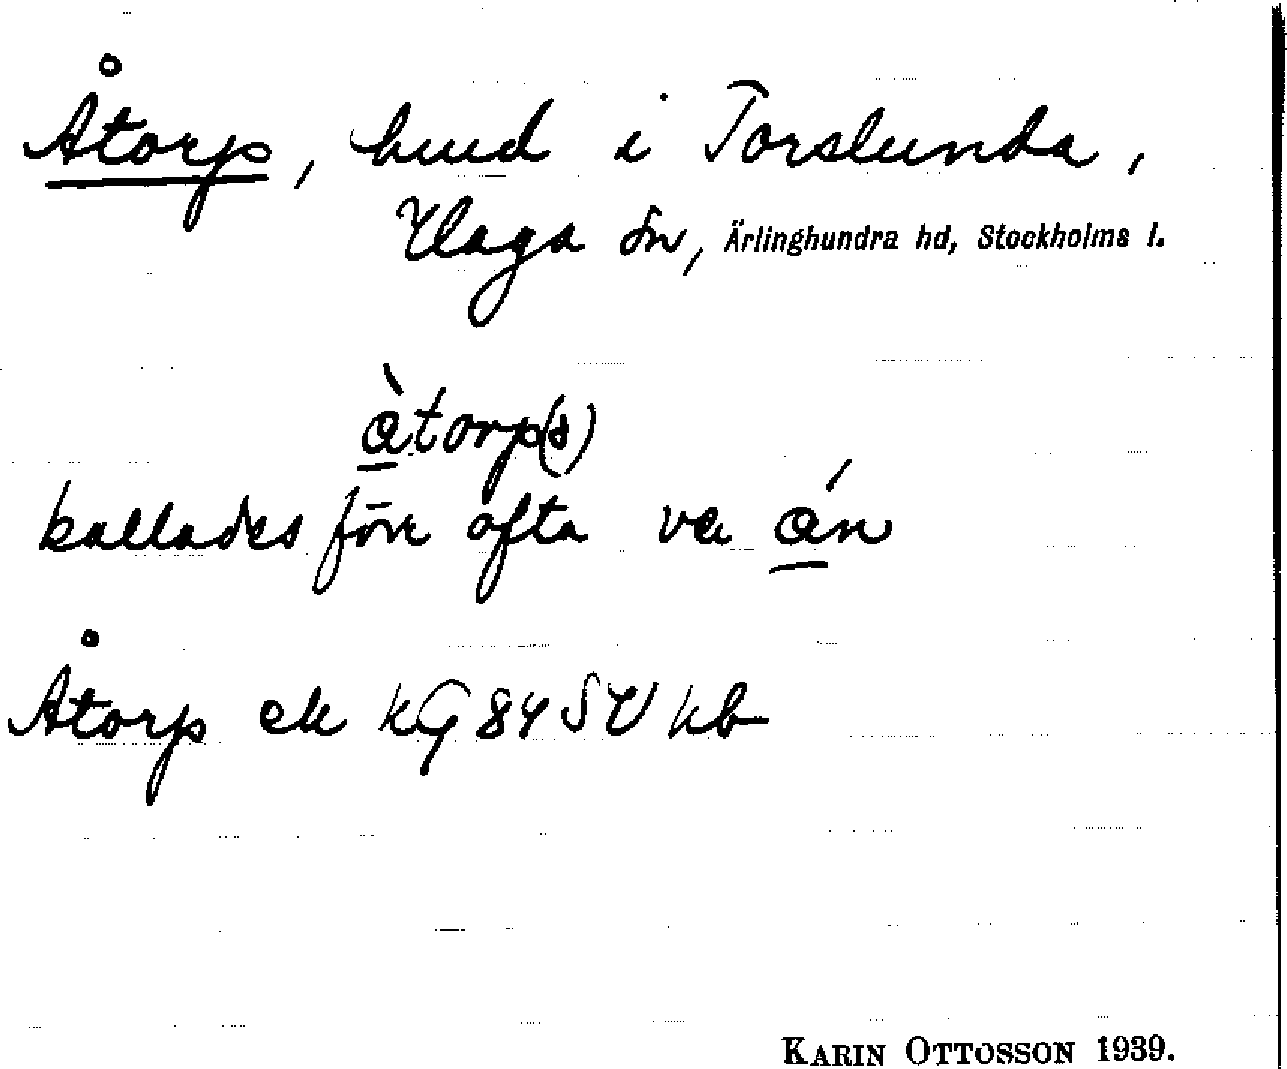 Åtorp, hmd i Torslunda,
Vlaga sn, Ärlinghundra hd, Stockholms l.
àtorp(s)
kallades förr ofta va án
Åtorp ek KG 84 SV kb
KARIN OTTOSSON 1939.